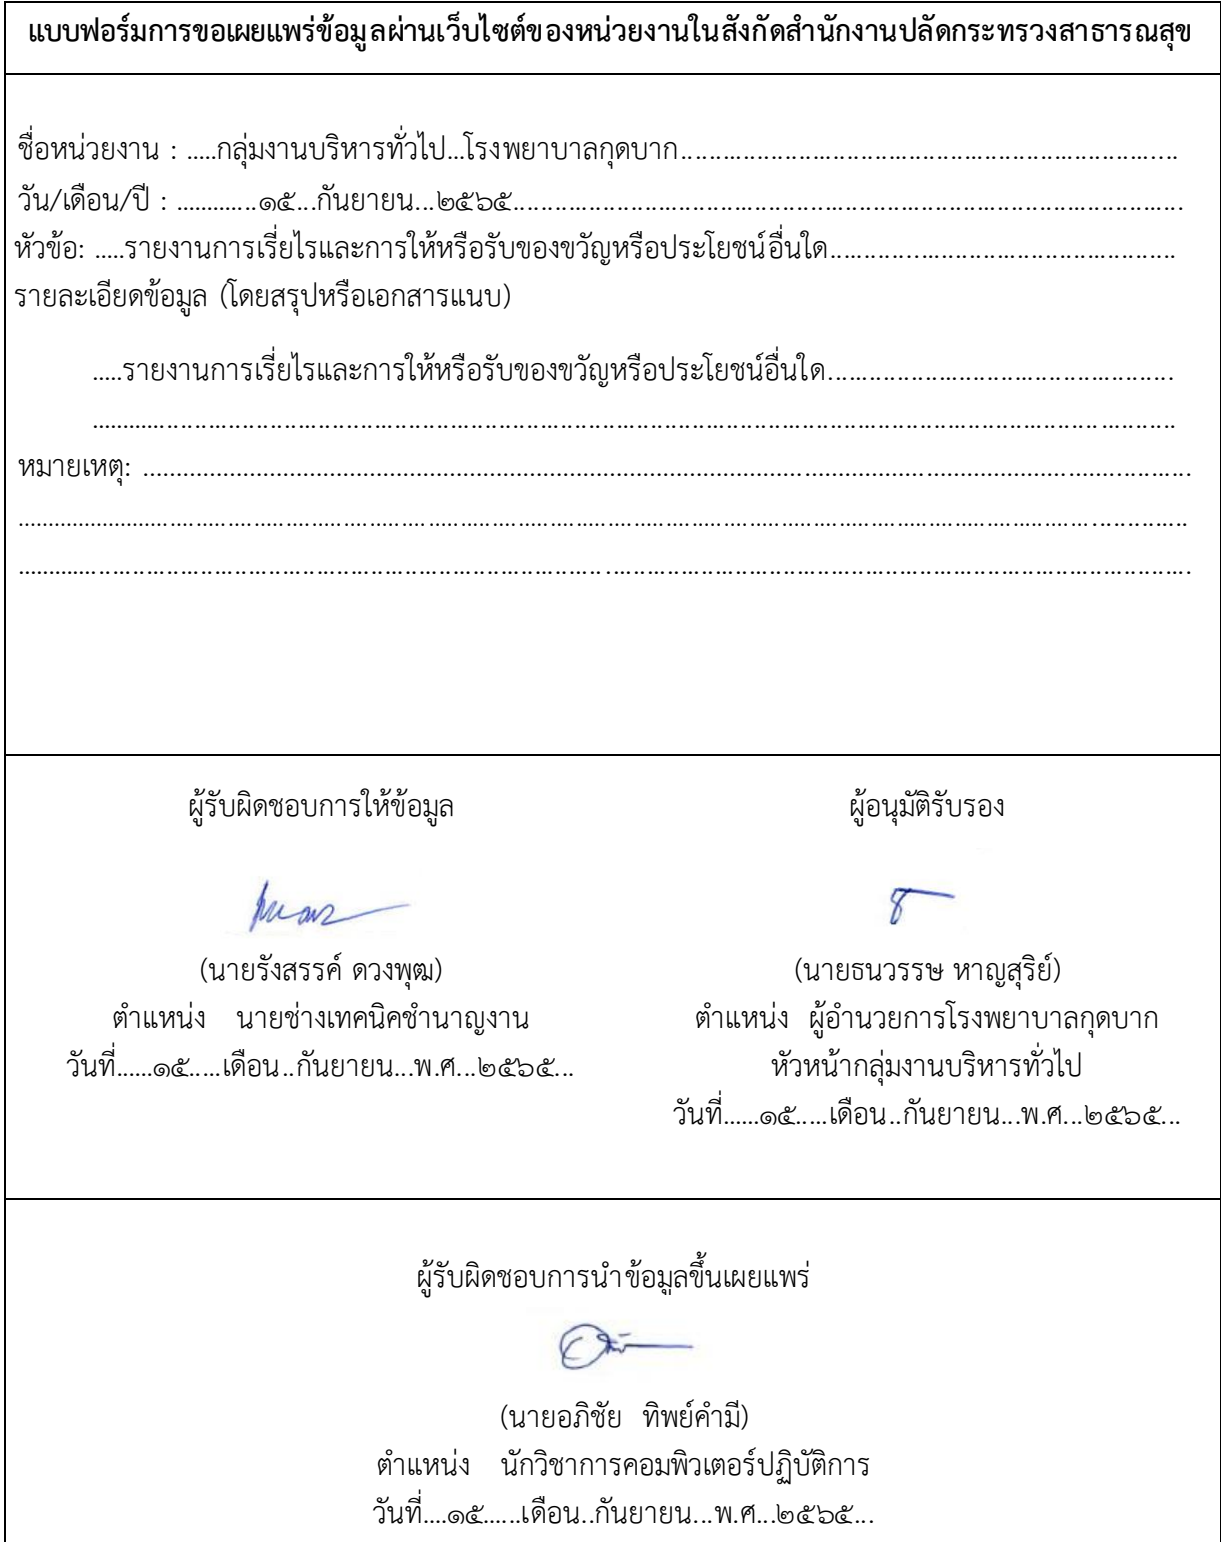 แบบฟอร์มการขอเผยแพร่ข้อมูลผ่านเว็บไซต์ของหน่วยงานในสังกัดสำนักงานปลัดกระทรวงสาธารณสุข
ชื่อหน่วยงาน : .....กลุ่มงานบริหารทั่วไป...โรงพยาบาลกุดบาก..............................................................................
วัน/เดือน/ปี : .............๑๕...กันยายน...๒๕๖๕..............................................................................................................
หัวข้อ: .....รายงานการเรี่ยไรและการให้หรือรับของขวัญหรือประโยชน์อื่นใด........................................................
รายละเอียดข้อมูล (โดยสรุปหรือเอกสารแนบ)
.....รายงานการเรี่ยไรและการให้หรือรับของขวัญหรือประโยชน์อื่นใด........................................................
..................................................................................................................................................................
หมายเหตุ: ..................................................................................................................................................................
..................................................................................................................................................................................
..................................................................................................................................................................................
ผู้รับผิดชอบการให้ข้อมูล ผู้อนุมัติรับรอง
(นายรังสรรค์ ดวงพุฒ) (นายธนวรรษ หาญสุริย์)
ตำแหน่ง นายช่างเทคนิคชำนาญงาน ตำแหน่ง ผู้อำนวยการโรงพยาบาลกุดบาก
วันที่......๑๕.....เดือน..กันยายน...พ.ศ...๒๕๖๕... หัวหน้ากลุ่มงานบริหารทั่วไป
วันที่......๑๕.....เดือน..กันยายน...พ.ศ...๒๕๖๕...
ผู้รับผิดชอบการนำข้อมูลขึ้นเผยแพร่
(นายอภิชัย ทิพย์คำมี)
ตำแหน่ง นักวิชาการคอมพิวเตอร์ปฏิบัติการ
วันที่....๑๕......เดือน..กันยายน...พ.ศ...๒๕๖๕...